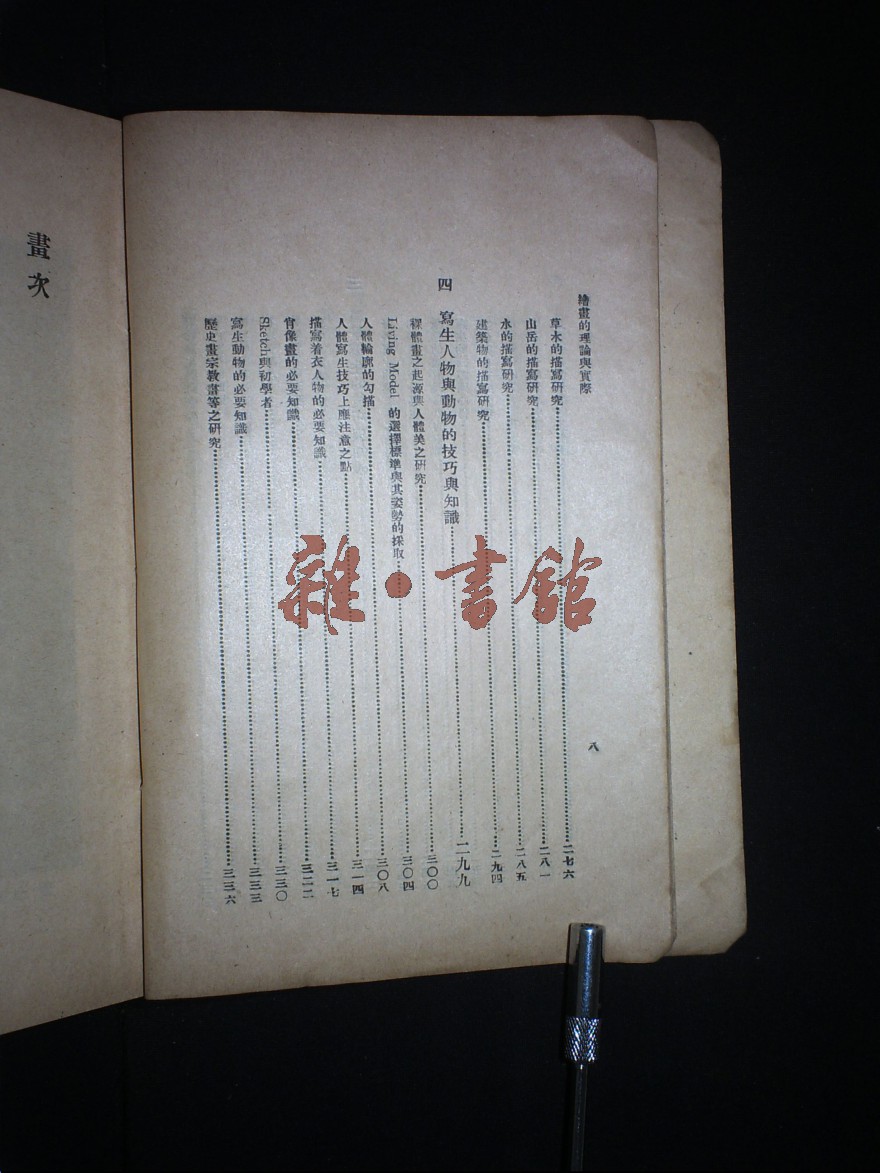 繪畫的理論與實際
八
草木的描寫研究二七六
山岳的描寫研究二八一
水的描寫研究二八五
建築物的描寫研究二九四
四 寫生人物與動物的技巧與知識二九九
裸體畫之起源與人體美之研究三〇〇
Living Model 的選擇標準與其姿勢的採取三〇四
人體輪廓的勾描三〇八
人體寫生技巧上應注意之點三一四
描寫着衣人物的必要知識三一七
肖像畫的必要知識三二二
Sketch與初學者三三〇
寫生動物的必要知識三三三
歷史畫宗教畫等之研究三三六
畫次
雜·書館